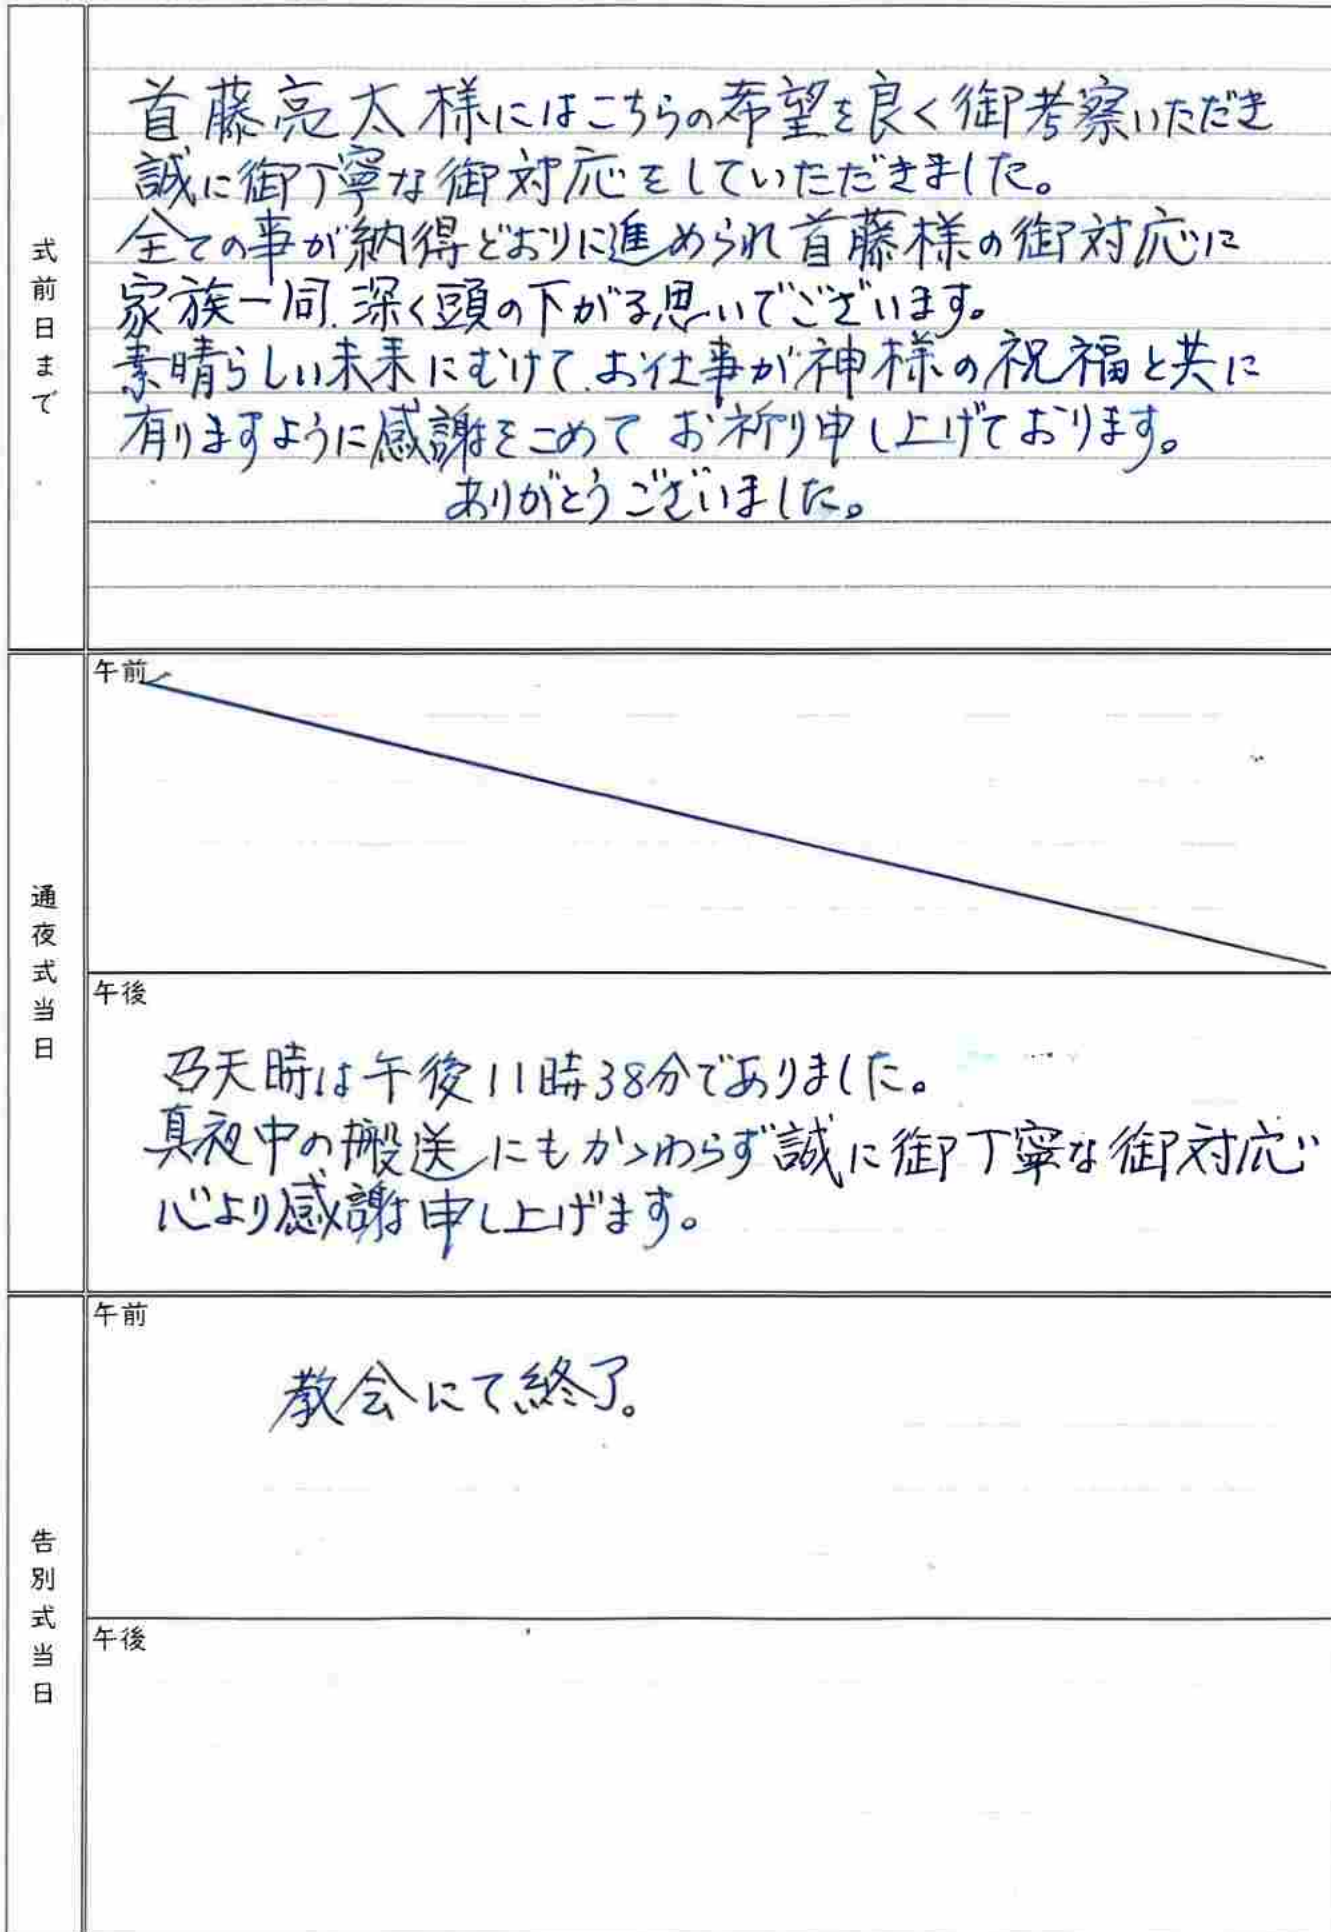 式前日まで
首藤亮太様にはこちらの希望を良く御考察いただき
誠に御丁寧な御対応をしていただきました。
全ての事が納得どおりに進められ首藤様の御対応に
家族一同、深く頭の下がる思いでございます。
素晴らしい未来にむけて、お仕事が神様の祝福と共に
有りますように感謝をこめて お祈り申し上げております。
ありがとうございました。
通夜式当日
午前
午後
召天時は午後11時38分でありました。
真夜中の搬送にもかゝわらず誠に御丁寧な御対応
心より感謝申し上げます。
告別式当日
午前
教会にて終了。
午後